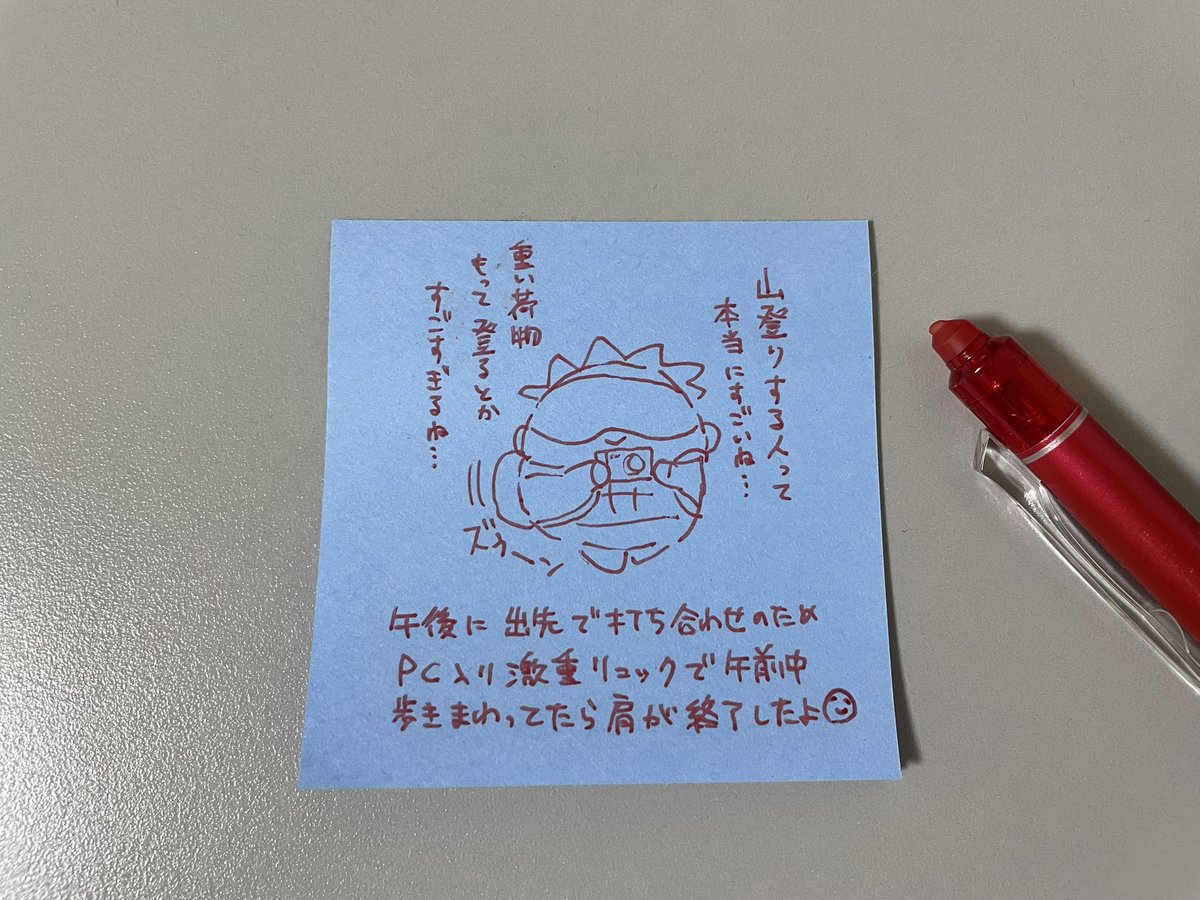 山登りする人って
本当にすごいね…
重い荷物
もって登るとか
すごすぎるね…
ズゥーン
午後に出先で打ち合わせのため
PC入り激重リュックで午前中
歩きまわってたら肩が終了したよ